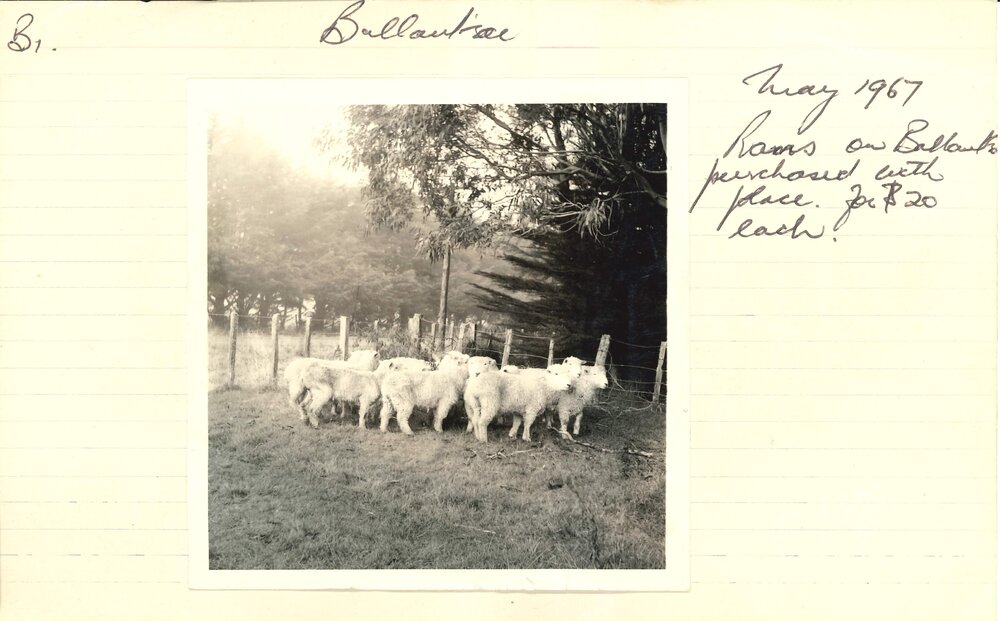 B1.
Ballantrae
May 1967
Rams on Ballantrae
purchased with
place. for $20
each.